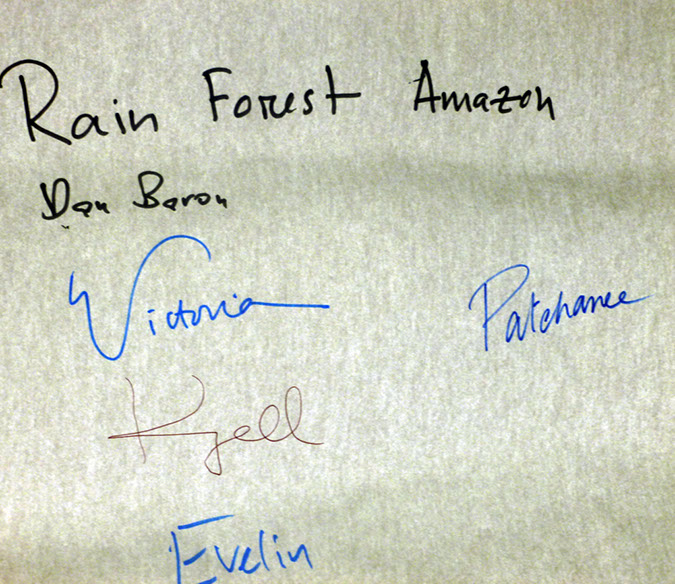 Rain Forest Amazon
Dan Baron
Victoria Patchanee
Kjell
Evelin